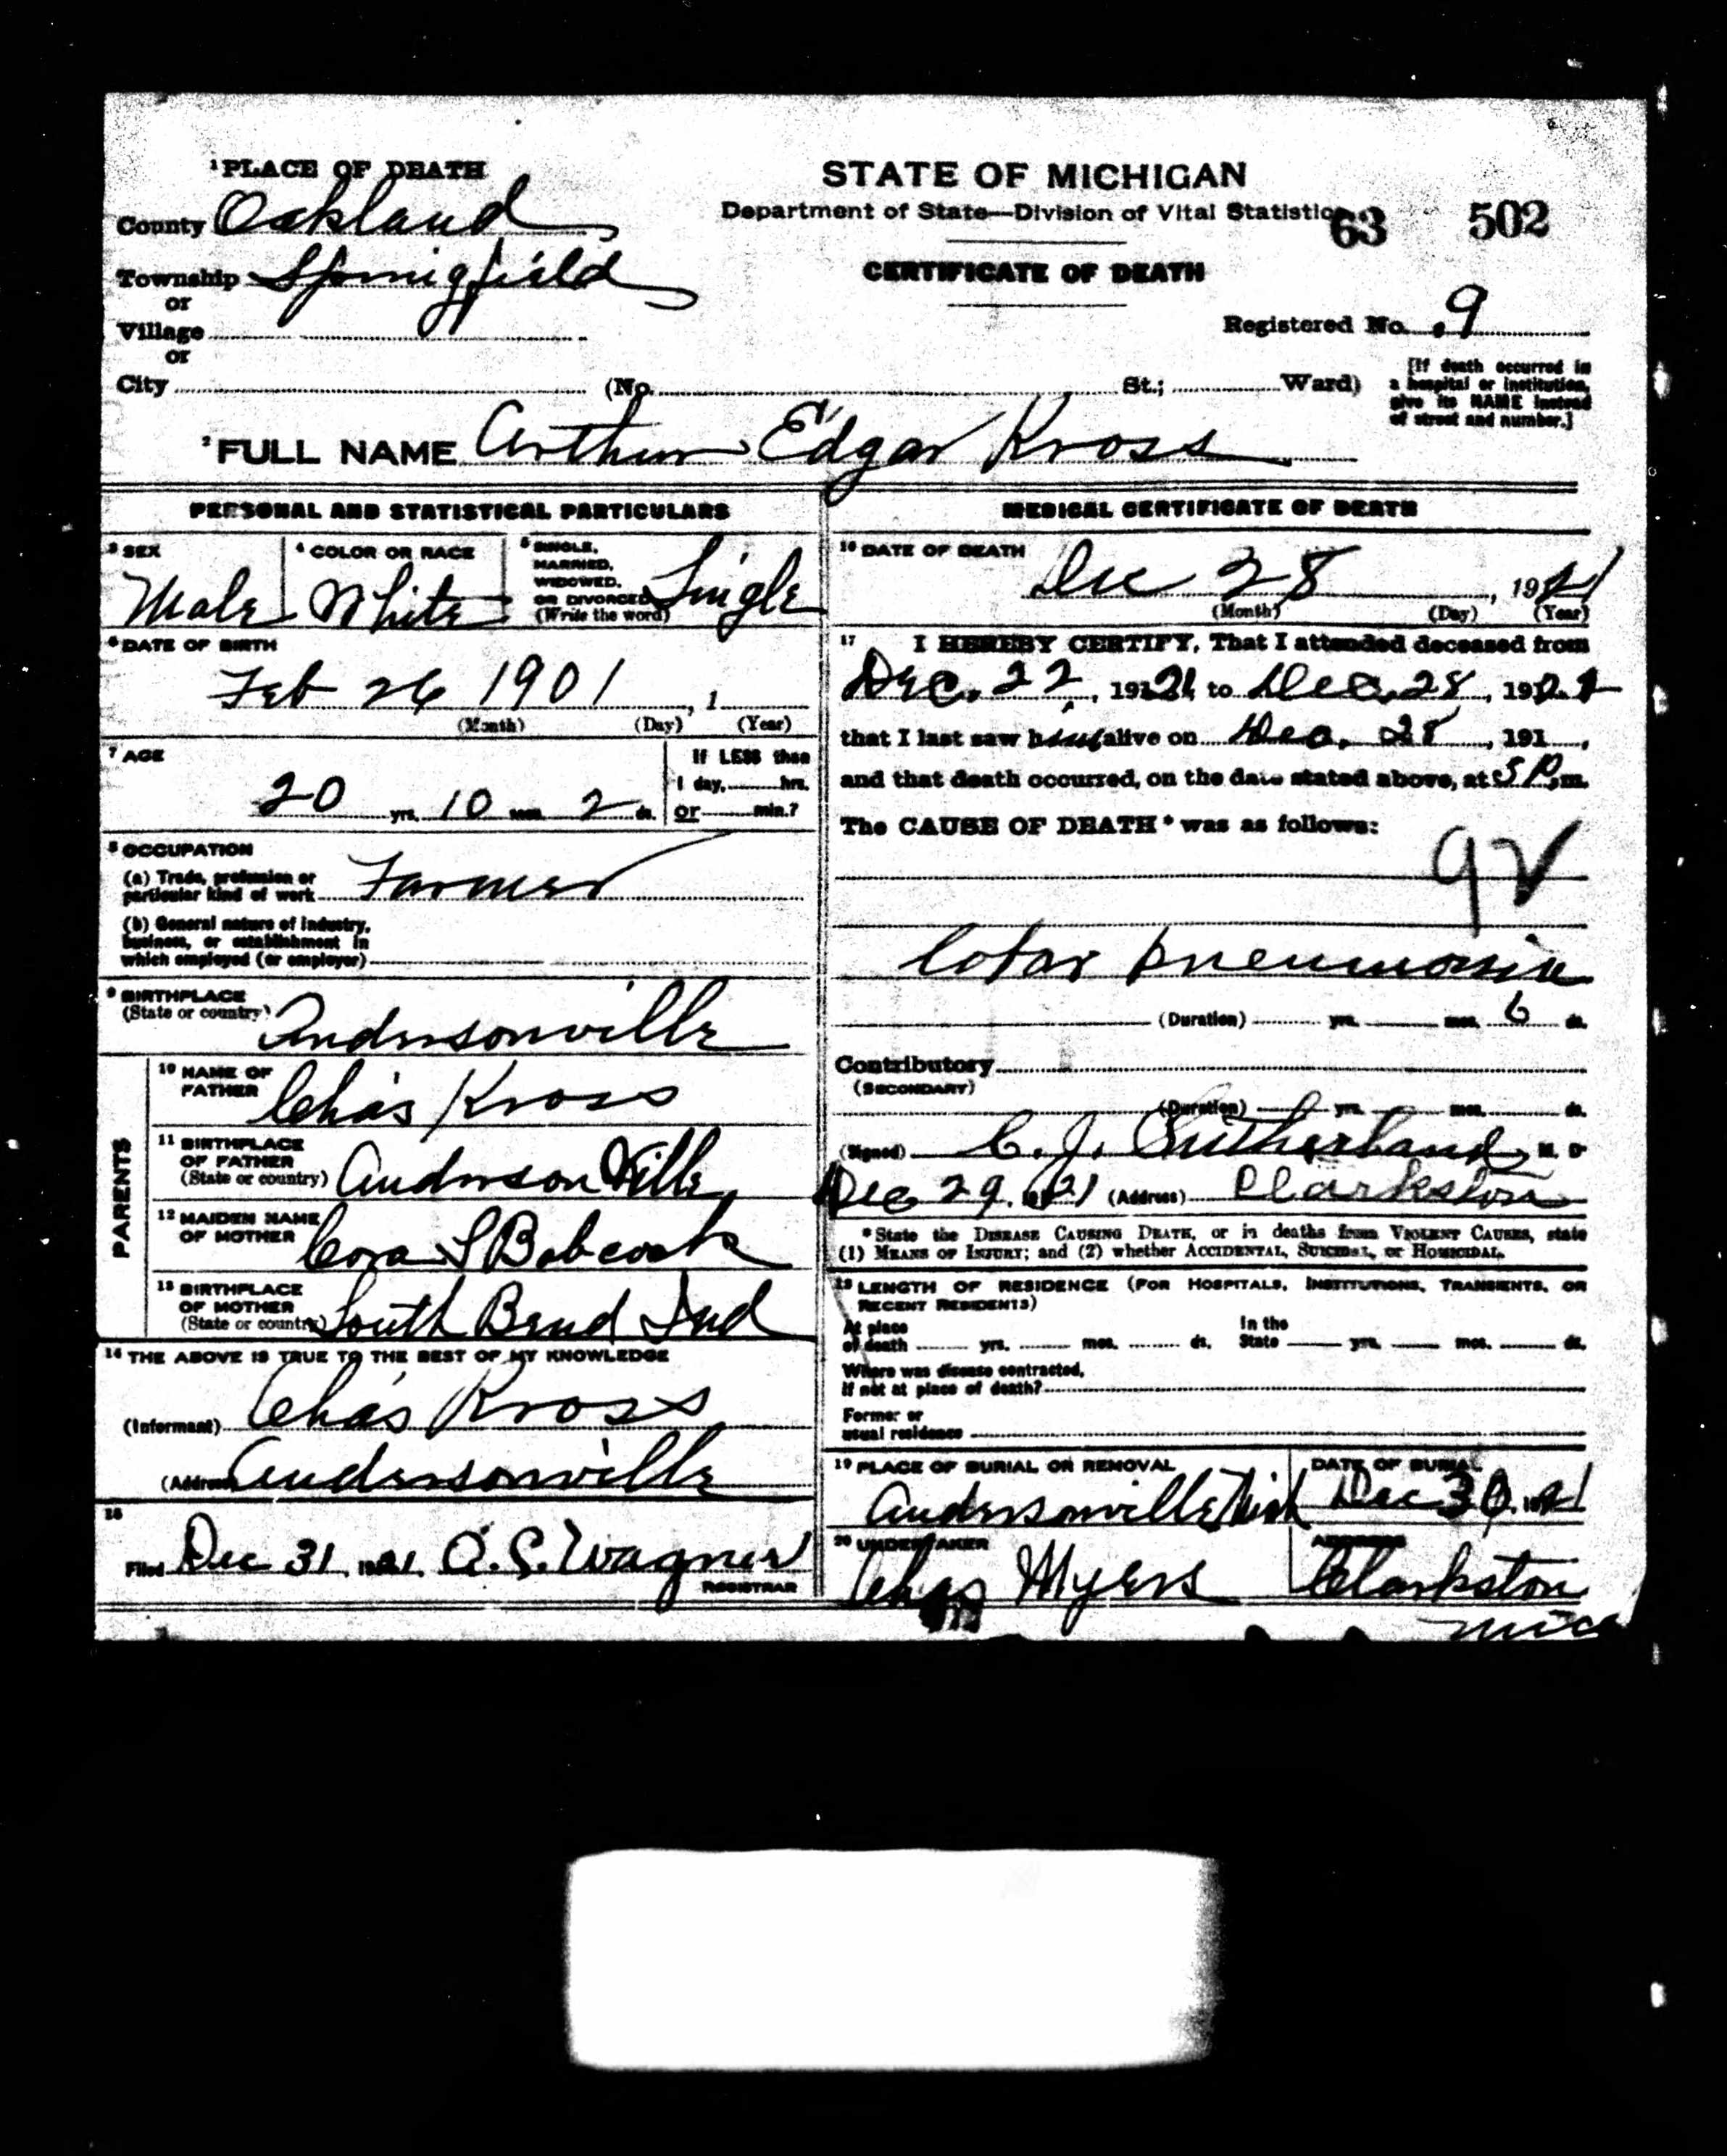 1 PLACE OF DEATH
STATE OF MICHIGAN
County Oakland
Department of State—Division of Vital Statistics
63 502
Township Springfield
CERTIFICATE OF DEATH
or
Village
Registered No. 9
or
City (No. St.; Ward)
[If death occurred in
a hospital or institution,
give its NAME instead
of street and number.]
2 FULL NAME Arthur Edgar Kross
PERSONAL AND STATISTICAL PARTICULARS
3 SEX
Male
4 COLOR OR RACE
White
5 SINGLE,
MARRIED,
WIDOWED,
OR DIVORCED
(Write the word)
Single
6 DATE OF BIRTH
Feb 26 1901, 1
(Month) (Day) (Year)
7 AGE
20 yrs. 10 mos. 2 ds.
If LESS than
1 day, hrs.
or min.?
8 OCCUPATION
(a) Trade, profession or
particular kind of work Farmer
(b) General nature of industry,
business, or establishment in
which employed (or employer)
9 BIRTHPLACE
(State or country)
Andersonville
PARENTS
10 NAME OF
FATHER Chas Kross
11 BIRTHPLACE
OF FATHER
(State or country) Anderson Ville
12 MAIDEN NAME
OF MOTHER Cora S Babcock
13 BIRTHPLACE
OF MOTHER
(State or country) South Bend Ind
14 THE ABOVE IS TRUE TO THE BEST OF MY KNOWLEDGE
(Informant) Chas Kross
(Address) Andersonville
15
Filed Dec 31, 1921 A. S. Wagner
REGISTRAR
MEDICAL CERTIFICATE OF DEATH
16 DATE OF DEATH
Dec 28, 1921
(Month) (Day) (Year)
17 I HEREBY CERTIFY, That I attended deceased from
Dec. 22, 1921, to Dec. 28, 1921
that I last saw him alive on Dec. 28, 191,
and that death occurred, on the date stated above, at 5 P.m.
The CAUSE OF DEATH* was as follows:
92
lobar pneumonia
(Duration) yrs. mos. 6 ds.
Contributory
(SECONDARY)
(Duration) yrs. mos. ds.
(Signed) C. J. Sutherland, M. D
Dec 29, 1921 (Address) Clarkston
*State the DISEASE CAUSING DEATH, or in deaths from VIOLENT CAUSES, state
(1) MEANS OF INJURY; and (2) whether ACCIDENTAL, SUICIDAL, or HOMICIDAL.
18 LENGTH OF RESIDENCE (FOR HOSPITALS, INSTITUTIONS, TRANSIENTS, OR
RECENT RESIDENTS)
At place
of death yrs. mos. ds.
In the
State yrs. mos. ds.
Where was disease contracted,
if not at place of death?
Former or
usual residence
19 PLACE OF BURIAL OR REMOVAL
Andersonville Mich
DATE OF BURIAL
Dec 30, 1921
20 UNDERTAKER
Chas Myers
ADDRESS
Clarkston
Mich